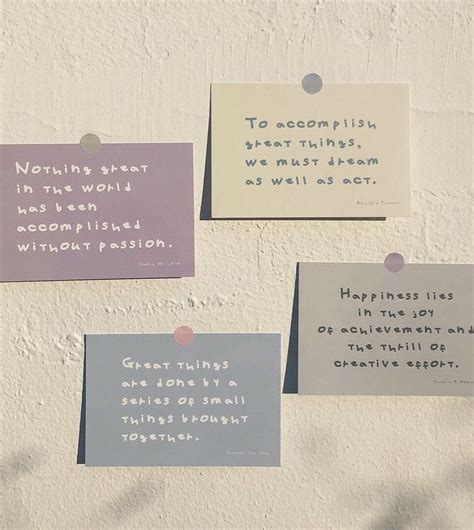 To accomplish
great things,
we must dream
as well as act.
Nothing great
in the world
has been
accomplished
without passion.
Happiness lies
in the joy
of achievement and
the thrill of
creative effort.
Great things
are done by a
series of small
things brought
together.